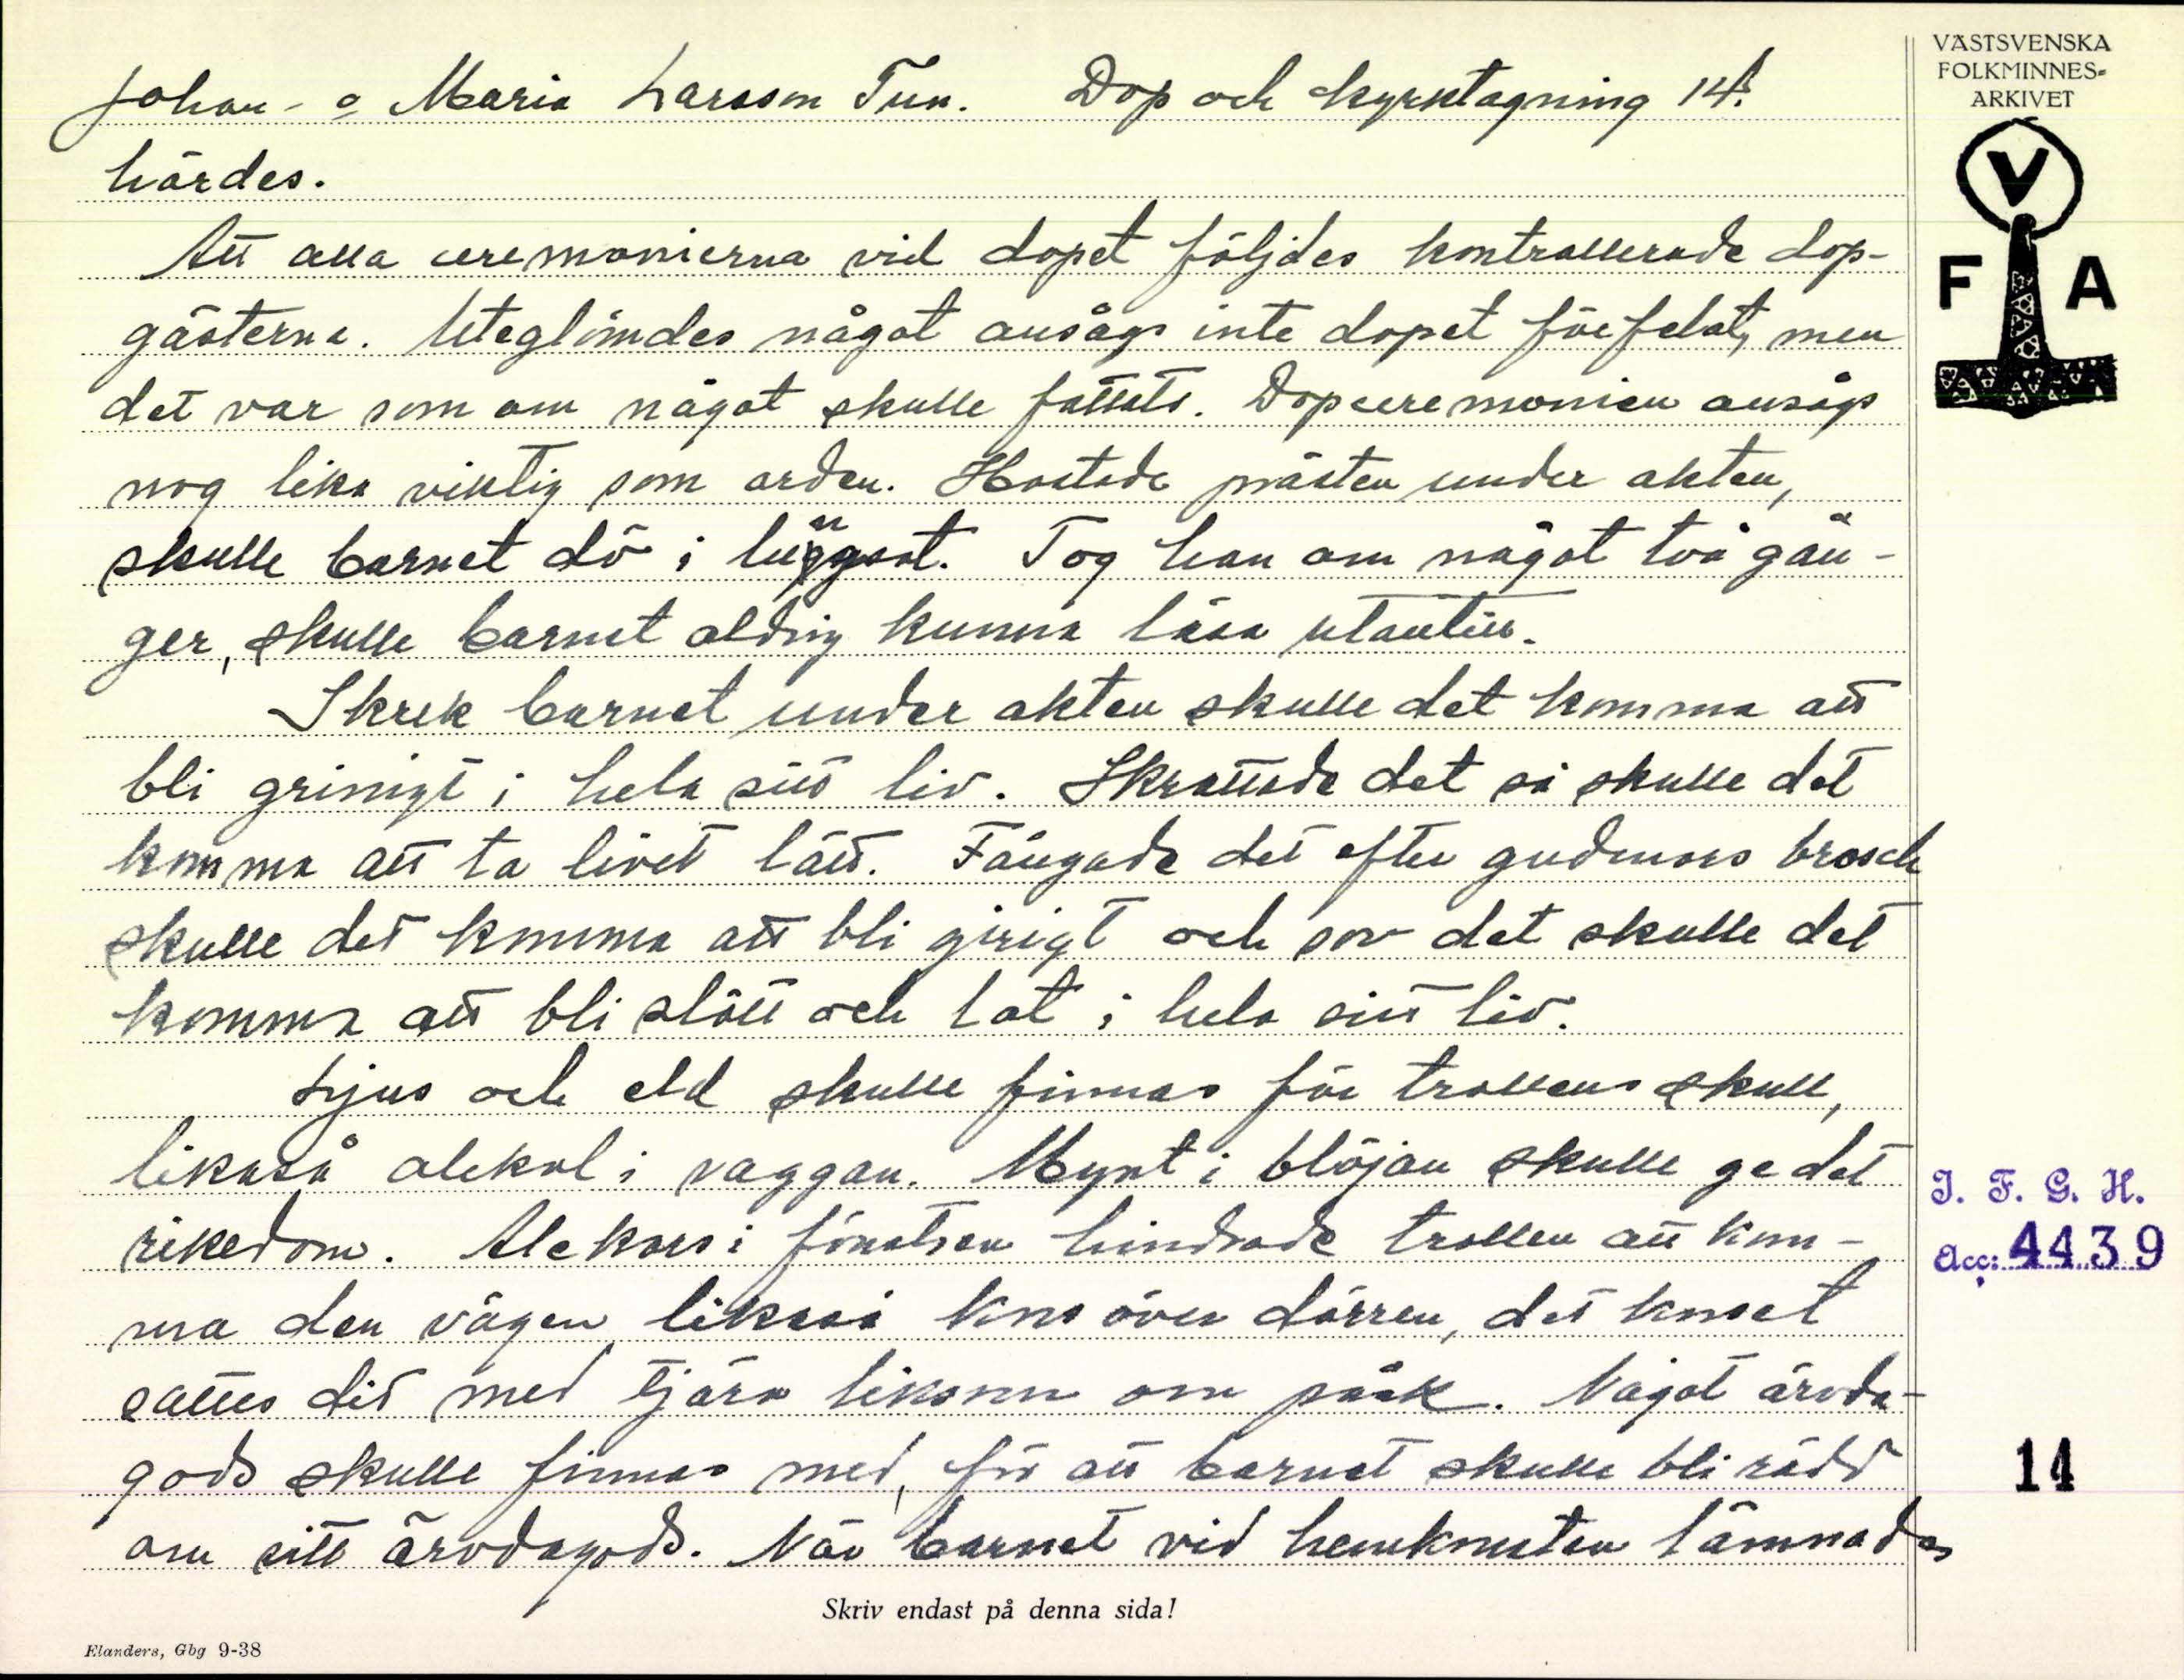 Johan- o Maria Larsson Tun. Dop och kyrktagning 14.
hördes.
Att alla ceremonierna vid dopet följdes kontrollerade dop-
gästerna. Uteglömdes något ansågs inte dopet förfelat, men
det var som om något skulle fattats. Dopceremonien ansågs
nog lika viktig som orden. Hostade prästen under akten,
skulle barnet dö i lungsot. Tog han om något två gån-
ger, skulle barnet aldrig kunna läsa utantill.
Skrek barnet under akten skulle det komma att
bli grinigt i hela sitt liv. Skrattade det så skulle det
komma att ta livet lätt. Fångade det efter gudmors brosch
skulle det komma att bli girigt och sov det skulle det
komma att bli slött och lat i hela sitt liv.
Ljus och eld skulle finnas för trollens skull,
likaså alekol i vaggan. Mynt i blöjan skulle ge det
rikedom. Alekors i fönstren hindrade trollen att kom-
ma den vägen likaså kors över dörren, det korset
sattes dit med tjära liksom om påsk. Något ärvda-
gods skulle finnas med, för att barnet skulle bli rädd
om sitt ärvdagods. När barnet vid hemkomsten lämnades
Skriv endast på denna sida!
Elanders, Gbg 9-38
VÄSTSVENSKA
FOLKMINNES-
ARKIVET
V
F A
I. F. G. H.
Acc: 4439
14